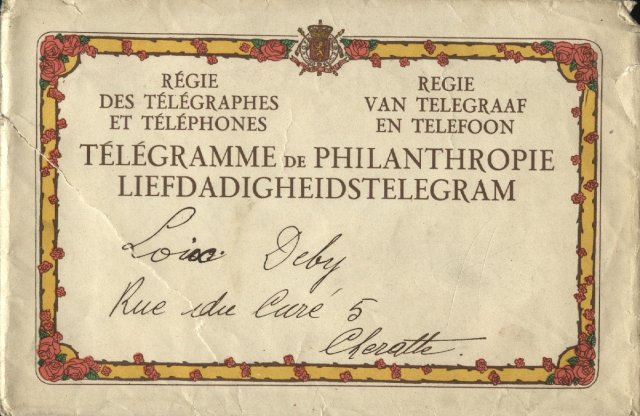 RÉGIE
DES TÉLÉGRAPHES
ET TÉLÉPHONES
REGIE
VAN TELEGRAAF
EN TELEFOON
TÉLÉGRAMME DE PHILANTHROPIE
LIEFDADIGHEIDSTELEGRAM
Loïc Deby
Rue du Curé 5
Cheratte.